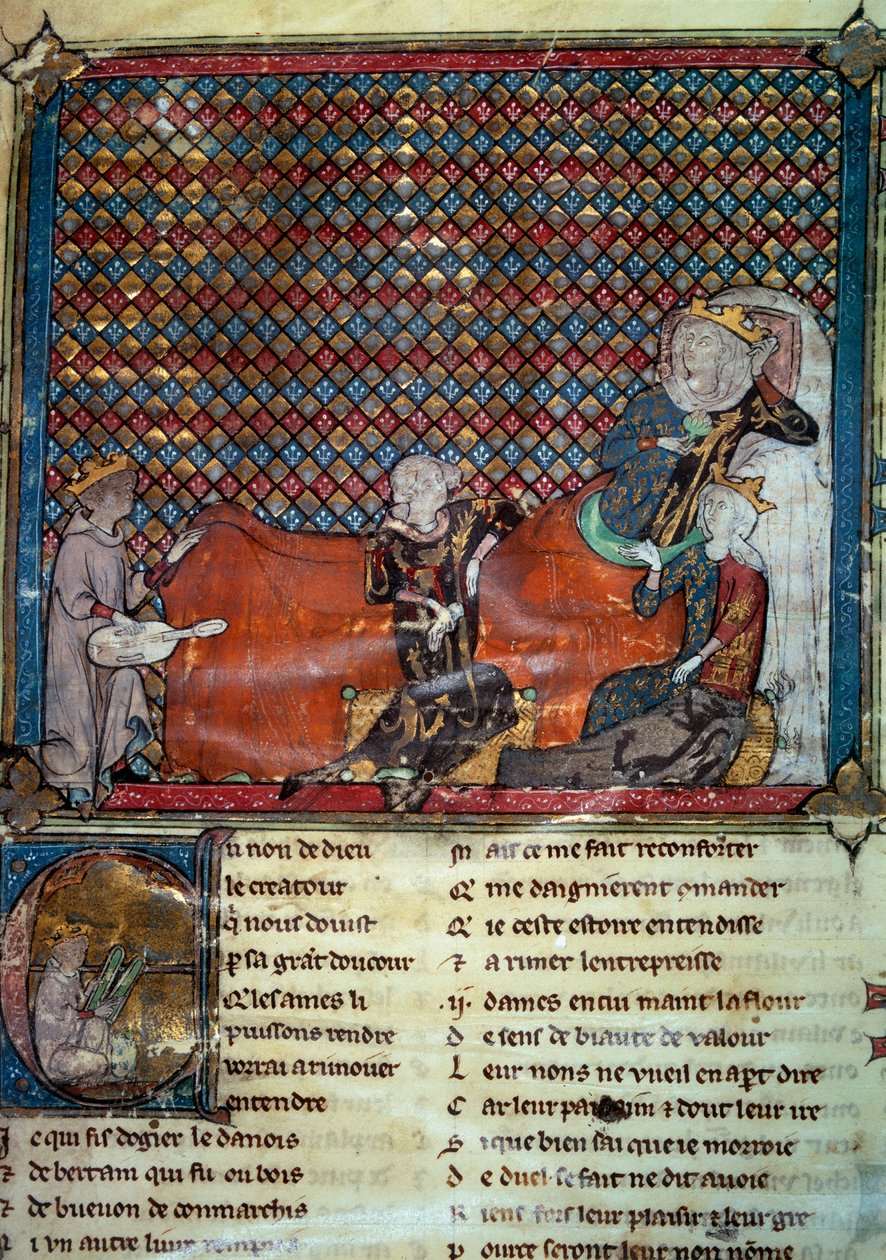 n non de dieu
le creatour
q̃ nous doinst
p sa grãt doucour
Q̃ les ames li
puissons rendre
vorrai a rimouer
entendre
J e qui fis dogier le danois
⁊ de bertain qui fu ou bois
⁊ de bueuon de conmarchis
i vn autre liure
M ais ce me fait reconforter
Q̃ me daignierent ꝯmander
Q̃ ie ceste estoire entendisse
⁊ a rimer lentrepreisse
.ij. dames en cui maint la flour
d e sens de biaute de valour
L eur nons ne vueil en aꝑt dire
C ar leur pais aim ⁊ dout leur ire
S i que bien sai que ie morroie
D e duel se fait ne dit auoie
R iens fors leur plaisir ⁊ leur gre
P ource seront leur non nõme